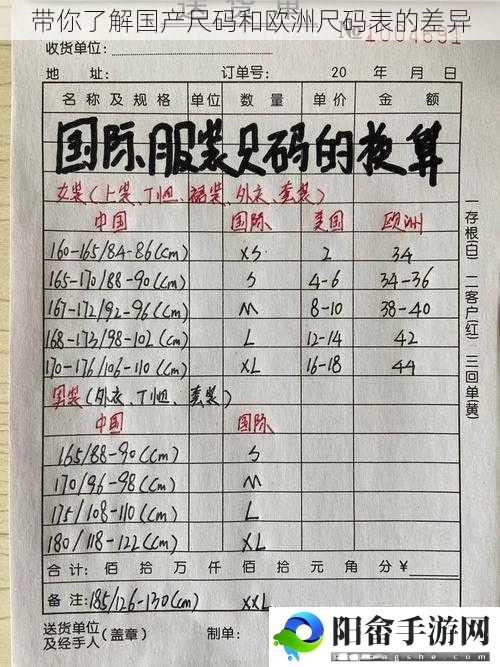 带你了解国产尺码和欧洲尺码表的差异
送货单
收货单位: № 1004691
地址: 订单号: 20 年 月 日
名称及规格 单位 数量 单价 金额
国际服装尺码的换算
女装(上装、T恤、裙装、外衣、套装)
中国 国际 美国 欧洲
160-165/84-86(cm) XS 2 34
165-170/88-90(cm) S 4-6 34-36
167-172/92-96(cm) M 8-10 38-40
168-173/98-102(cm) L 12-14 42
170-176/106-110(cm) XL 16-18 44
男装(外衣、T恤、套装)
中国 国际
165/88-90(cm) S
170/96-98(cm) M
175/108-110(cm) L
180/118-122(cm) XL
合计: 佰 拾 万 仟 佰 拾 元 角 分 ¥
备注: 185/126-130(cm) XXL
送货单位及经手人(盖章) 制单:
一存根(白) 二客户(红) 三回单(黄)
阳畲手游网